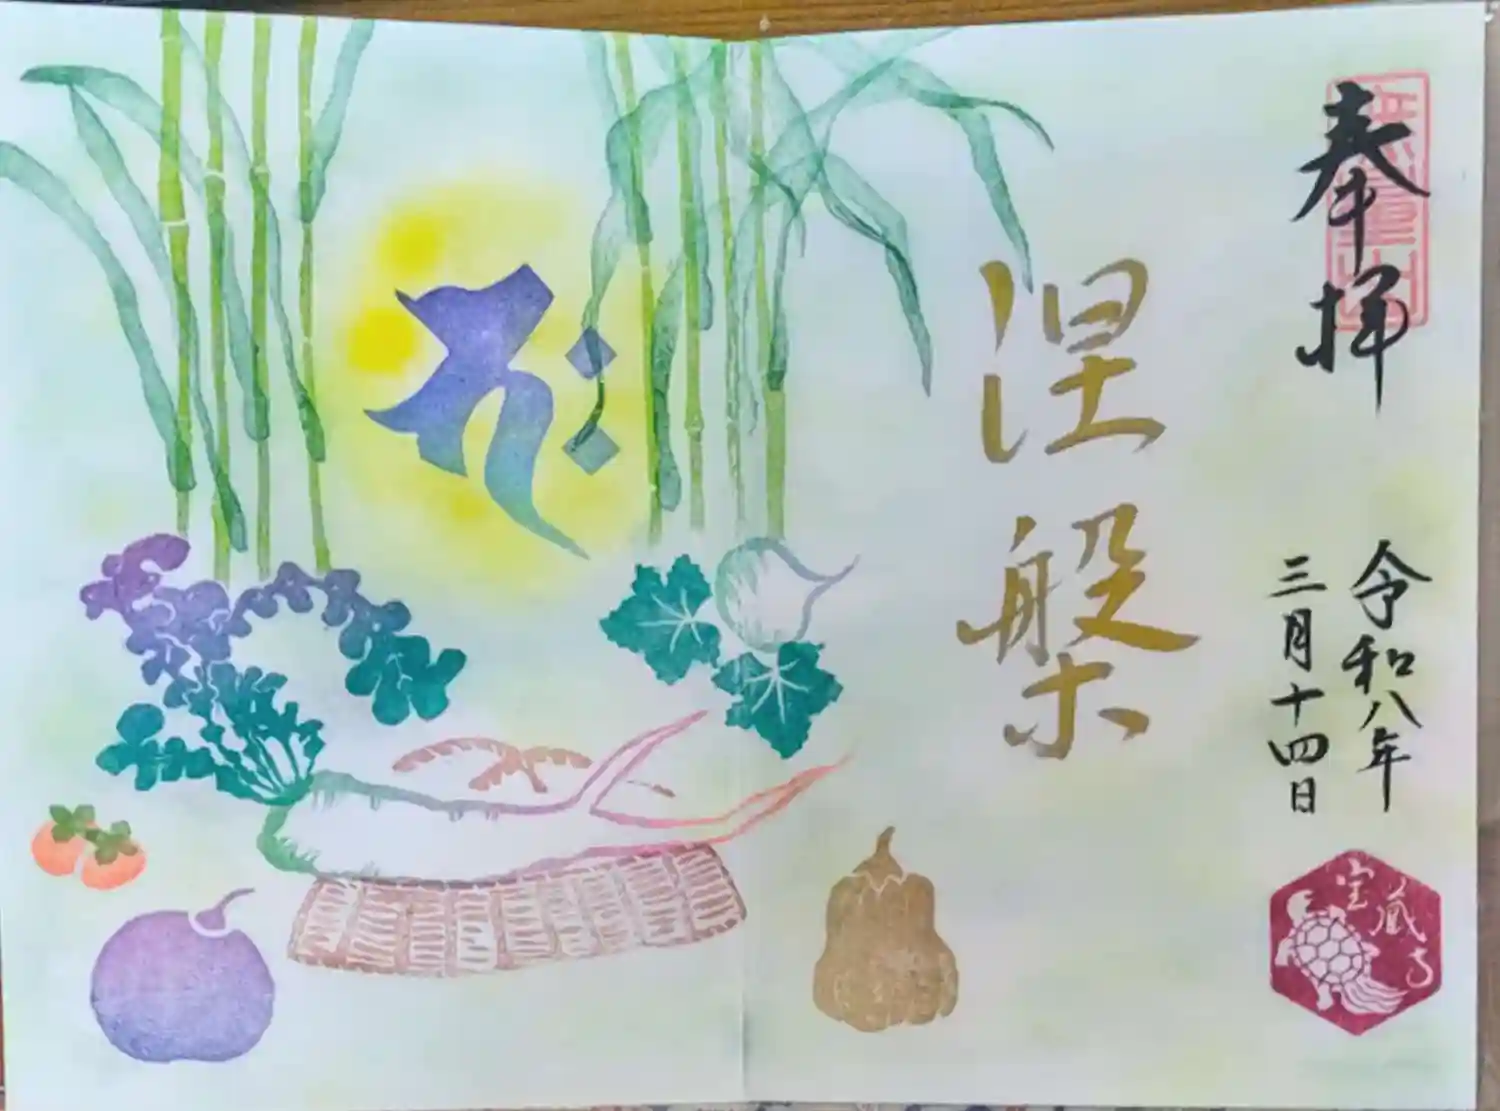 奉拝
無量山
涅槃
令和八年
三月十四日
宝蔵寺